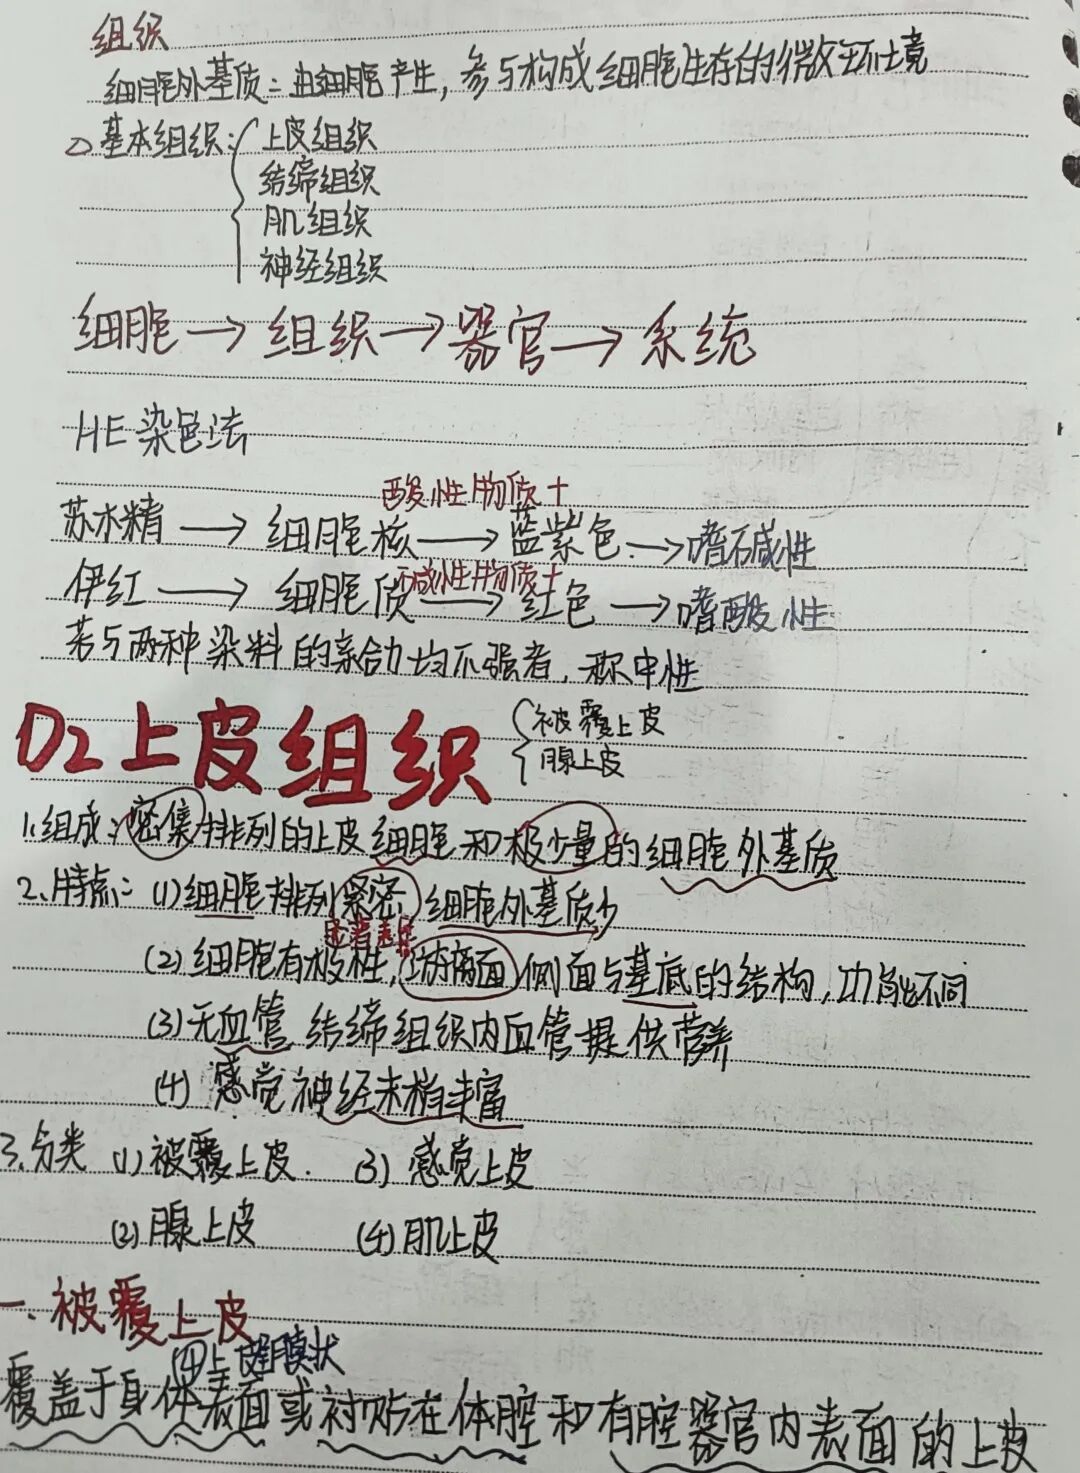 组织
细胞外基质：由细胞产生，参与构成细胞生存的微环境
基本组织：上皮组织
结缔组织
肌组织
神经组织
细胞→组织→器官→系统
HE染色法
酸性物质+
苏木精→细胞核→蓝紫色→嗜碱性
碱性物质+
伊红→细胞质→红色→嗜酸性
若与两种染料的亲合力均不强者，称中性
02上皮组织
被覆上皮
腺上皮
1.组成：密集排列的上皮细胞和极少量的细胞外基质
2、特点：(1)细胞排列紧密 细胞外基质少
(2)细胞有极性，游离面 侧面与基底的结构，功能不同
(3)无血管 结缔组织内血管提供营养
(4) 感觉神经末梢丰富
3.分类 (1)被覆上皮. (3) 感觉上皮
(2)腺上皮 (4)肌上皮
一.被覆上皮
覆盖于身体表面或衬贴在体腔和有腔器官内表面的上皮